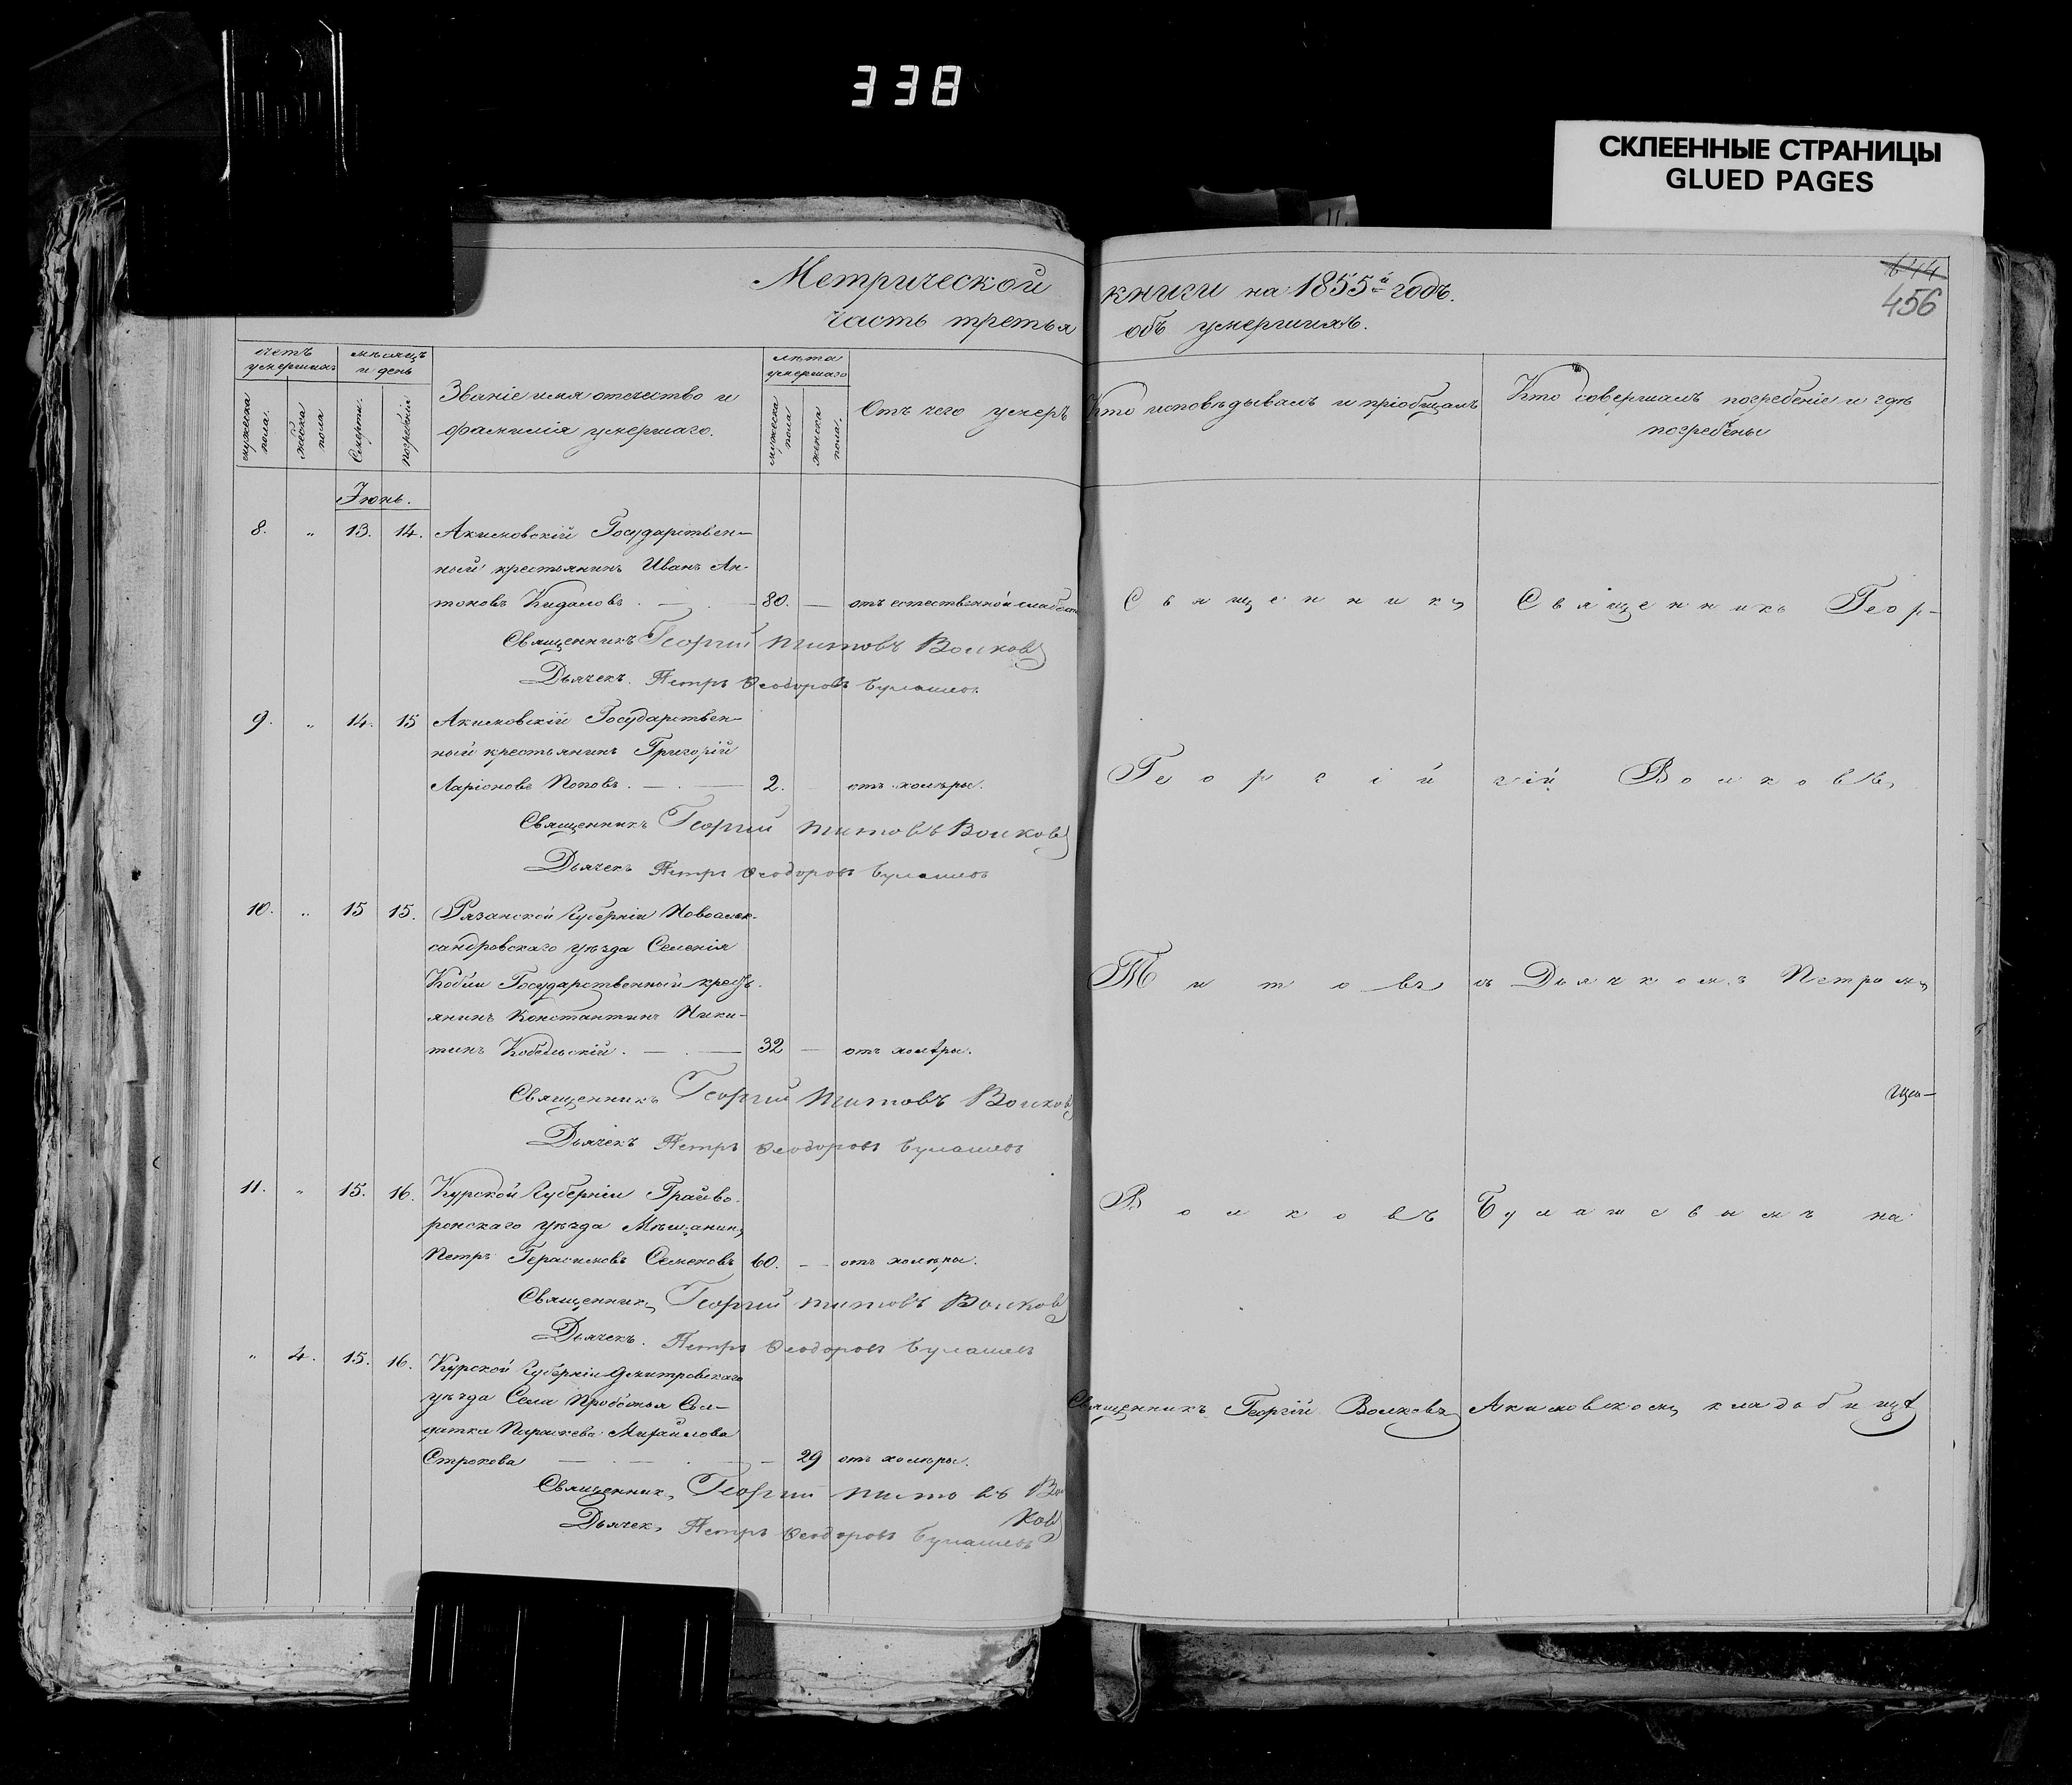 338
СКЛЕЕННЫЕ СТРАНИЦЫ
GLUED PAGES
644
456
Метрической книги на 1855й годъ.
часть третья объ умершихъ.
счетъ умершихъ
мѣсяцъ и день
Званіе имя отечество и
фамилія умершаго.
лѣта умершаго
Отъ чего умеръ
Кто исповѣдывалъ и пріобщалъ
Кто совершалъ погребеніе и гдѣ
погребены
мужеска пола.
женска пола
Смерти.
погребенія
мужеска пола
женска пола.
Іюнь.
8. „ 13. 14. Акимовскій Государствен-
ный крестьянинъ Иванъ Ан-
тоновъ Кидаловъ. 80. — отъ естественной слабости
Священникъ Георгій Титовъ Волковъ
Дьячекъ. Петръ Ѳеодоровъ Булашевъ
9. „ 14. 15 Акимовскій Государствен-
ный крестьянинъ Григорій
Ларіоновъ Поповъ. 2. отъ холѣры.
Священникъ Георгій Титовъ Волковъ
Дьячекъ Петръ Ѳеодоровъ Булашевъ
10. „ 15 15. Рязанской Губерніи Новоалек-
сандровскаго уѣзда Селенія
Государственный кресть-
янинъ Константинъ Ники-
тинъ Кобельскій. 32 — отъ холѣры.
Священникъ Георгій Титовъ Волковъ
Дьячекъ Петръ Ѳеодоровъ Булашевъ
11. „ 15. 16. Курской Губерніи Грайво-
ронскаго уѣзда Мѣщанинъ
Петръ Герасимовъ Семеновъ 60. — отъ холѣры.
Священникъ Георгій Титовъ Волковъ
Дьячекъ. Петръ Ѳеодоровъ Булашевъ
„ 4. 15. 16. Курской Губерніи Дмитровскаго
уѣзда Села Сол-
датка Параскева Михайлова
Строкова 29 отъ холѣры.
Священникъ Георгій Титовъ Вол
ковъ
Дьячекъ Петръ Ѳеодоровъ Булашевъ
Священникъ
Георгій
Титовъ
Волковъ
Священникъ Георгій Волковъ
Священникъ Геор-
гій Волковъ
съ Дьячкомъ Петромъ
Булашевымъ на
Акимовскомъ кладбищѣ